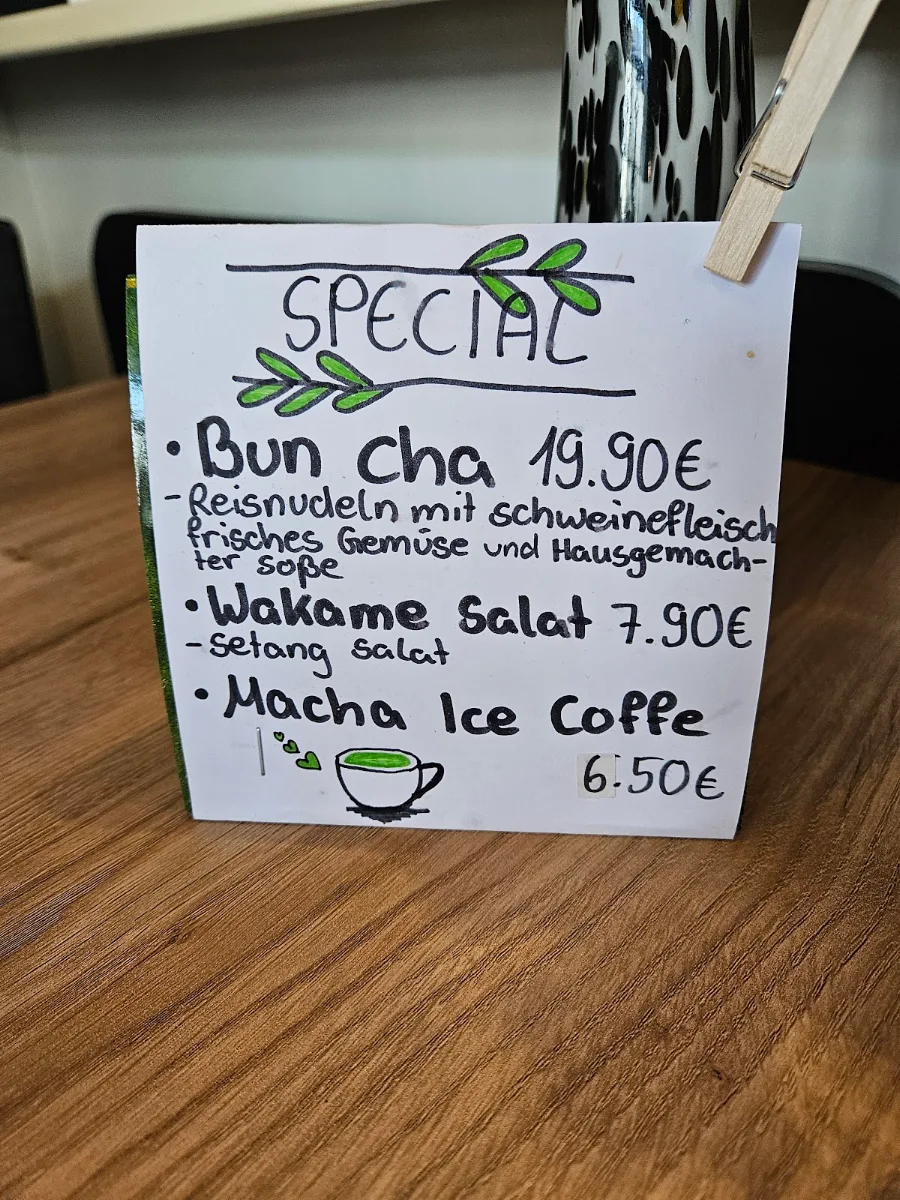 SPECIAL
• Bun Cha 19.90€
- Reisnudeln mit schweinefleisch
frisches Gemüse und Hausgemach-
ter soße
• Wakame Salat 7.90€
- Setang Salat
• Macha Ice Coffe
6.50€